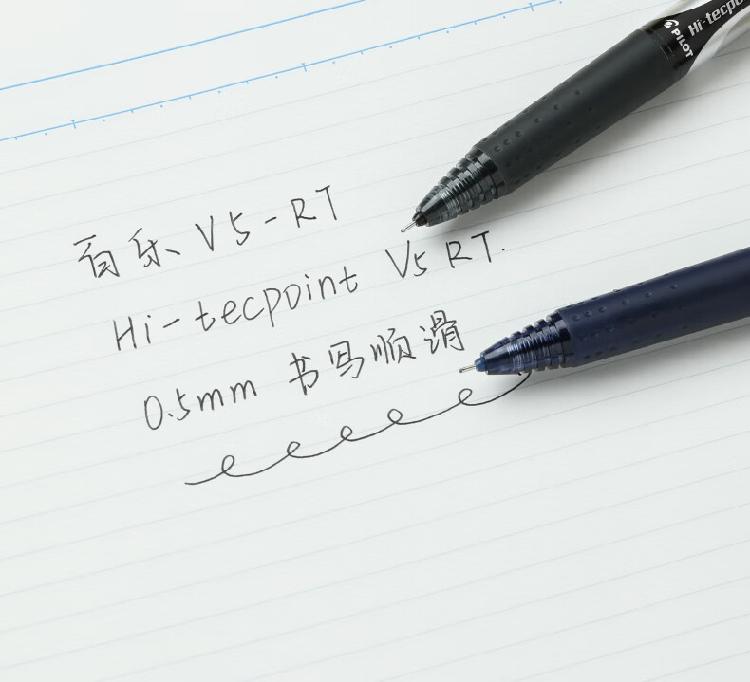 百乐 V5-RT
Hi-tecpoint V5 RT.
0.5mm 书写顺滑
PILOT Hi-tecpo